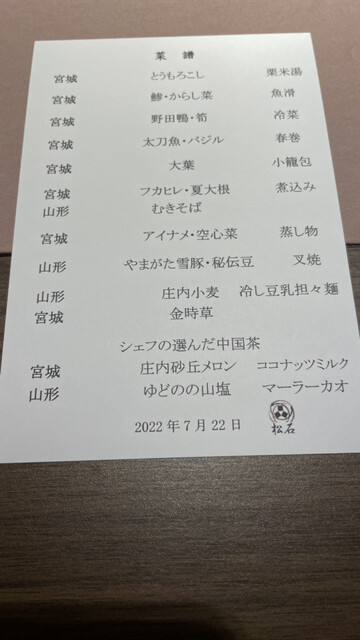 菜 譜
宮城 とうもろこし 粟米湯
宮城 鯵・からし菜 魚滑
宮城 野田鴨・筍 冷菜
宮城 太刀魚・バジル 春巻
宮城 大葉 小籠包
宮城 フカヒレ・夏大根 煮込み
山形 むきそば
宮城 アイナメ・空心菜 蒸し物
山形 やまがた雪豚・秘伝豆 叉焼
山形 庄内小麦 冷し豆乳担々麺
宮城 金時草
シェフの選んだ中国茶
宮城 庄内砂丘メロン ココナッツミルク
山形 ゆどのの山塩 マーラーカオ
2022年7月22日 松石